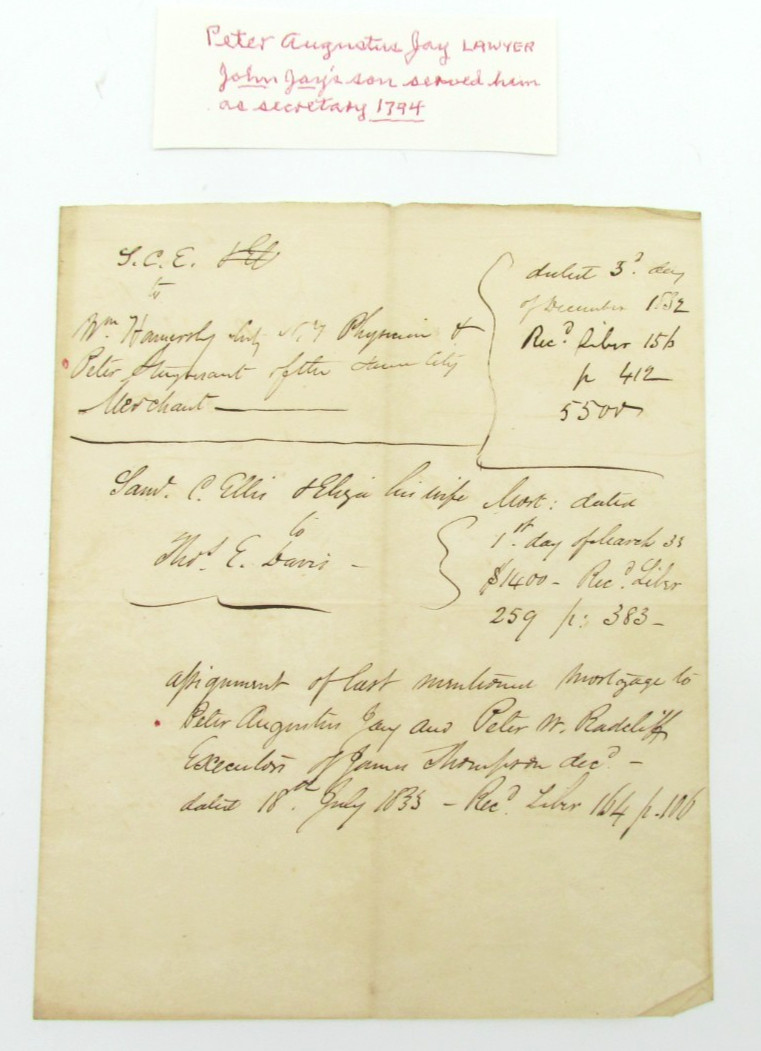 Peter Augustus Jay LAWYER
John Jay's son served him
as secretary 1794
S. C. E.
to
Wm Hamersly City N.Y Physician &
Peter Stuyvesant of the same City
Merchant
dated 3d day
of December 1832
Recd Liber 156
p 412
5500
Saml. C. Ellis & Eliza his wife
to
Thos E. Davis -
Mort: dated
1st day of March 33
$1400 - Recd Liber
259 p: 383 -
assignment of last mentioned mortgage to
Peter Augustus Jay and Peter W. Radcliff
Executors of James Thompson decd -
dated 18th July 1833 - Recd. Liber 164 p. 106